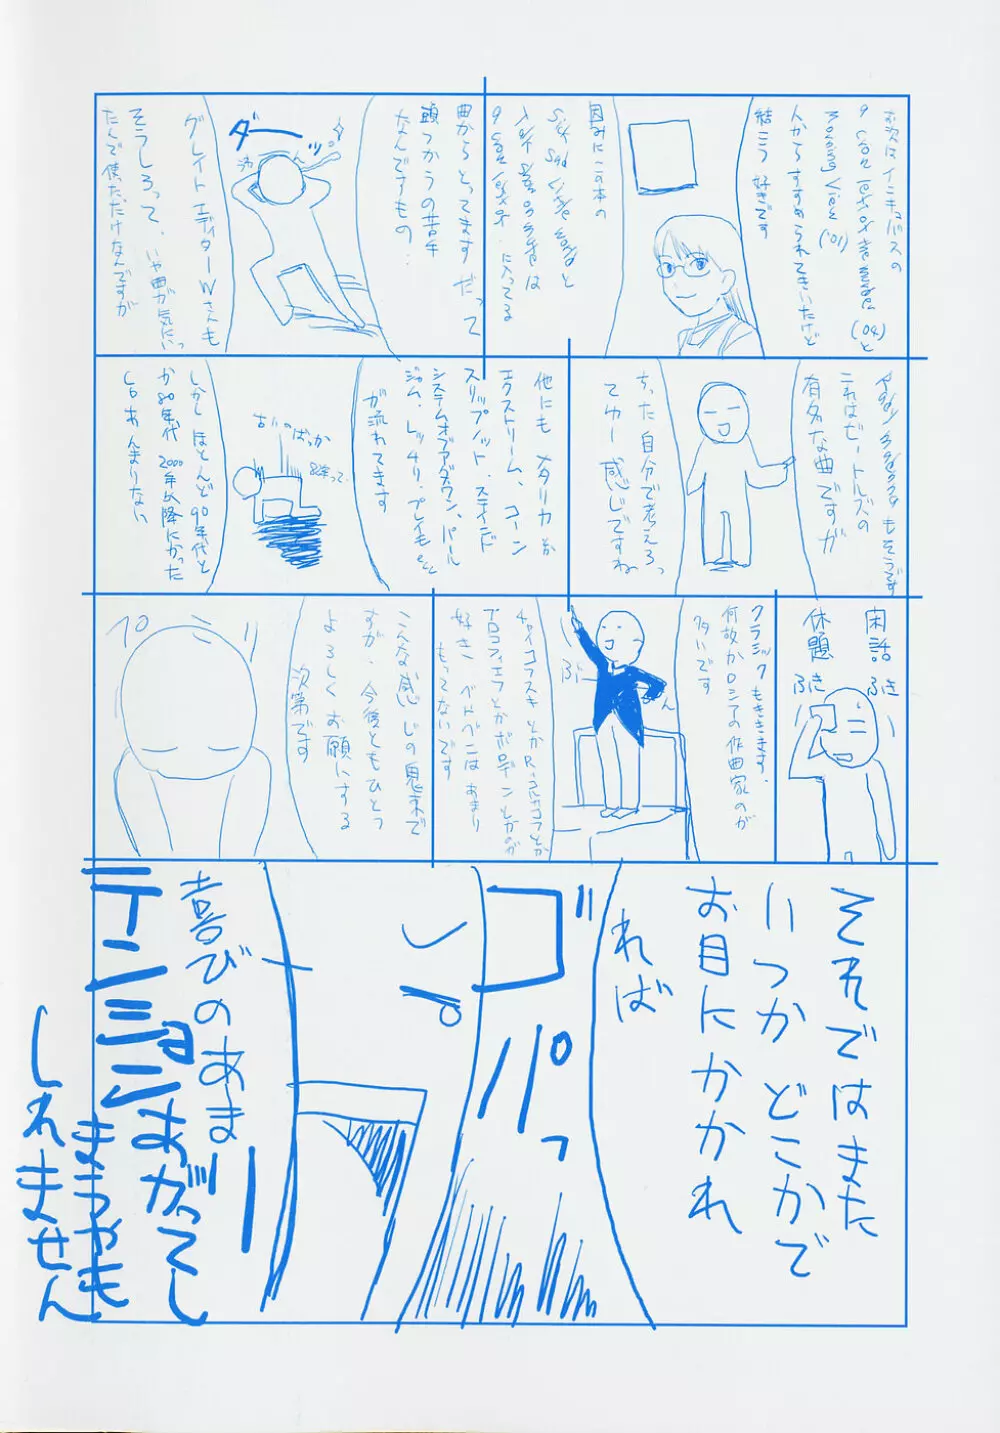 お次は インキュバスの
人からすすめられてきいたけど
結こう 好きです
因みにこの本の
Sick Sad Little World と
に入ってる
曲からとってます だって
頭つかうの苦手
なんですもの・
ダーッ
グレイト エディターWさんも
そうしろって、いや曲が気にいっ
たんで使ただけなんですが
もそうです
これはビートルズの
有名な曲ですが
ちった 自分で考えろっ
てゆー 感じですね
他にも メタリカ か
エクストリーム、コーン
スリップノット・ステインド
システムオブアダウン、パール
ジャム、レッチリ、プレイもetc
が流れてます
古いのばっか
しかし ほとんど 90年代と
か80年代 2000年以降にかった
CD あんまりない
閑話
休題
ふき
ふき
クラシック もききます、
何故かロシアの作曲家のが
多いです
チャイコフスキ とか R=コルサコフとか
プロコフィエフとかボロディンとかのが
好き ベトベンは あまり
もってないです
こんな感じの鬼末で
すが、今後ともひとつ
よろしく お願いする
次第です
ペコリ
それではまた
いつか どこかで
お目にかかれ
れば
ガパッ
喜びのあまー
テンションあがってし
まうかも
しれません